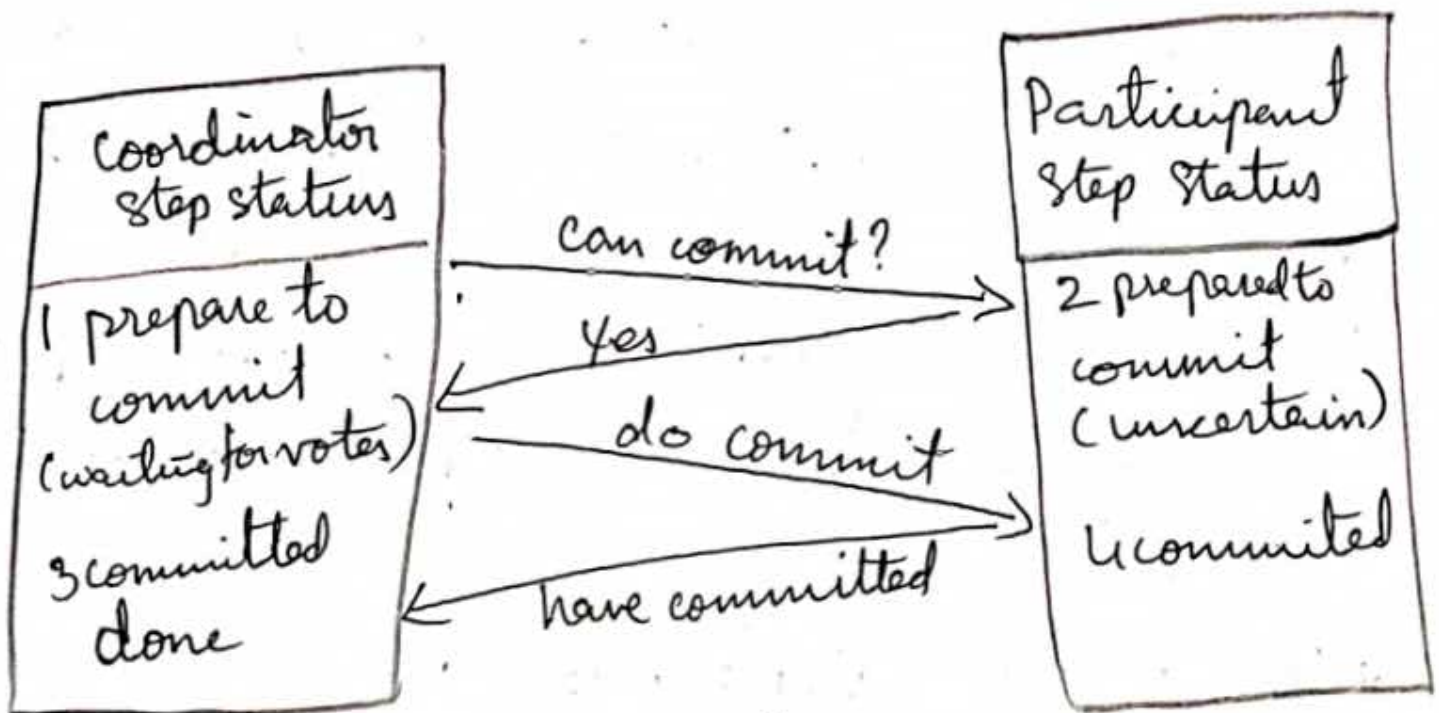 Coordinator
step status
1 prepare to
commit
(waiting for votes)
3 committed
done
can commit?
Yes
do commit
have committed
Participant
Step Status
2 prepared to
commit
(uncertain)
4 commited